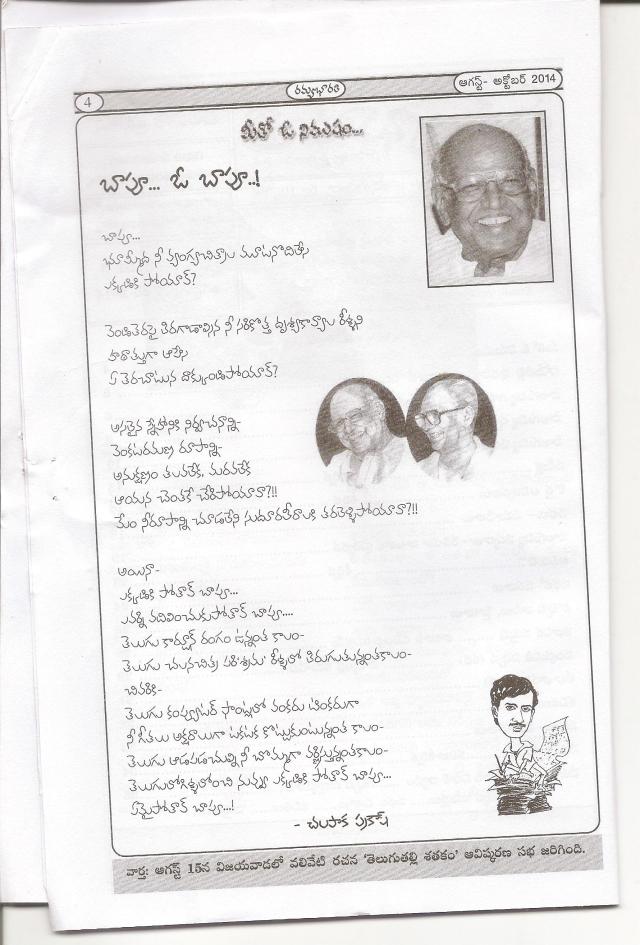 4
రమ్యభారతి
ఆగస్ట్- అక్టోబర్ 2014
మీతో ఓ నిముషం...
బాపూ... ఓ బాపూ..!
బాపూ...
భూమ్మీద నీ వ్యంగ్యచిత్రాల మూటనొదిలేసి
ఎక్కడికి పోయావ్?
వెండితెరపై తిరగాడాల్సిన నీ సరికొత్త దృశ్యకావ్యాల రీళ్ళని
కూఠాత్తుగా ఆపేసి
ఏ తెరచాటున దాక్కుండిపోయావ్?
అసలైన స్నేహానికి నిర్వచనాన్ని-
వెంకటరమణ రూపాన్ని-
అనుక్షణం తలవలేక, మరవలేక
ఆయన చెంతకే చేరిపోయావా?!!
మేం నీరూపాన్ని చూడలేని సుదూరతీరాలకి తరలెళ్ళిపోయావా?!!
అయినా-
ఎక్కడికి పోతావ్ బాపూ...
ఎవర్ని వదిలించుకుపోతావ్ బాపూ....
తెలుగు కార్టూన్ రంగం ఉన్నంత కాలం-
తెలుగు చలనచిత్ర పరిశ్రమ రీళ్ళలో తిరుగుతున్నంతకాలం-
చివరికి-
తెలుగు కంప్యూటర్ ఫాంట్లలో వంకరు టింకరుగా
నీ గీతలు అక్షరాలుగా టకటక కొట్టుకుంటున్నంత కాలం-
తెలుగు ఆడపడచుల్ని నీ బొమ్మగా వర్ణిస్తున్నంతకాలం-
తెలుగులోకిళ్ళలోంచి నువ్వు ఎక్కడికి పోతావ్ బాపూ...
ఏమైపోతావ్ బాపూ...!
- చలపాక ప్రకాష్
వార్త: ఆగస్ట్ 15న విజయవాడలో వలివేటి రచన 'తెలుగుతల్లి శతకం' ఆవిష్కరణ సభ జరిగింది.